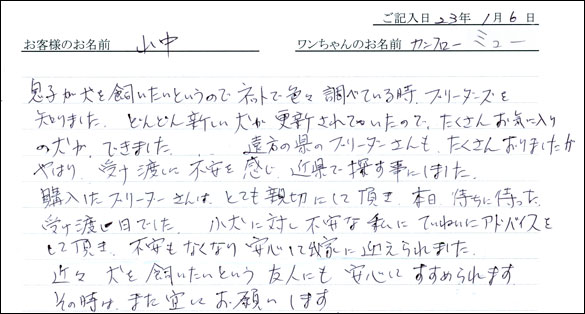 ご記入日 23年 1月 6日
お客様のお名前 山中 ワンちゃんのお名前 カンフロー ミュー
息子が犬を飼いたいというので ネットで色々 調べている時、ブリーダーズを
知りました。 どんどん新しい犬が 更新されていたので、たくさんお気に入り
の犬が、できました。 遠方の県のブリーダーさんも、たくさんおりましたが
やはり、受け渡しに不安を感じ、近県で探す事にしました。
購入したブリーダーさんは、とても親切にして頂き、本日、待ちに待った、
受け渡し日でした。 小犬に対し不安な私に ていねいにアドバイスを
して頂き、不安もなくなり 安心して我家に迎えられました。
近々 犬を飼いたいという 友人にも 安心して すすめられます
その時は、また宜しくお願いします